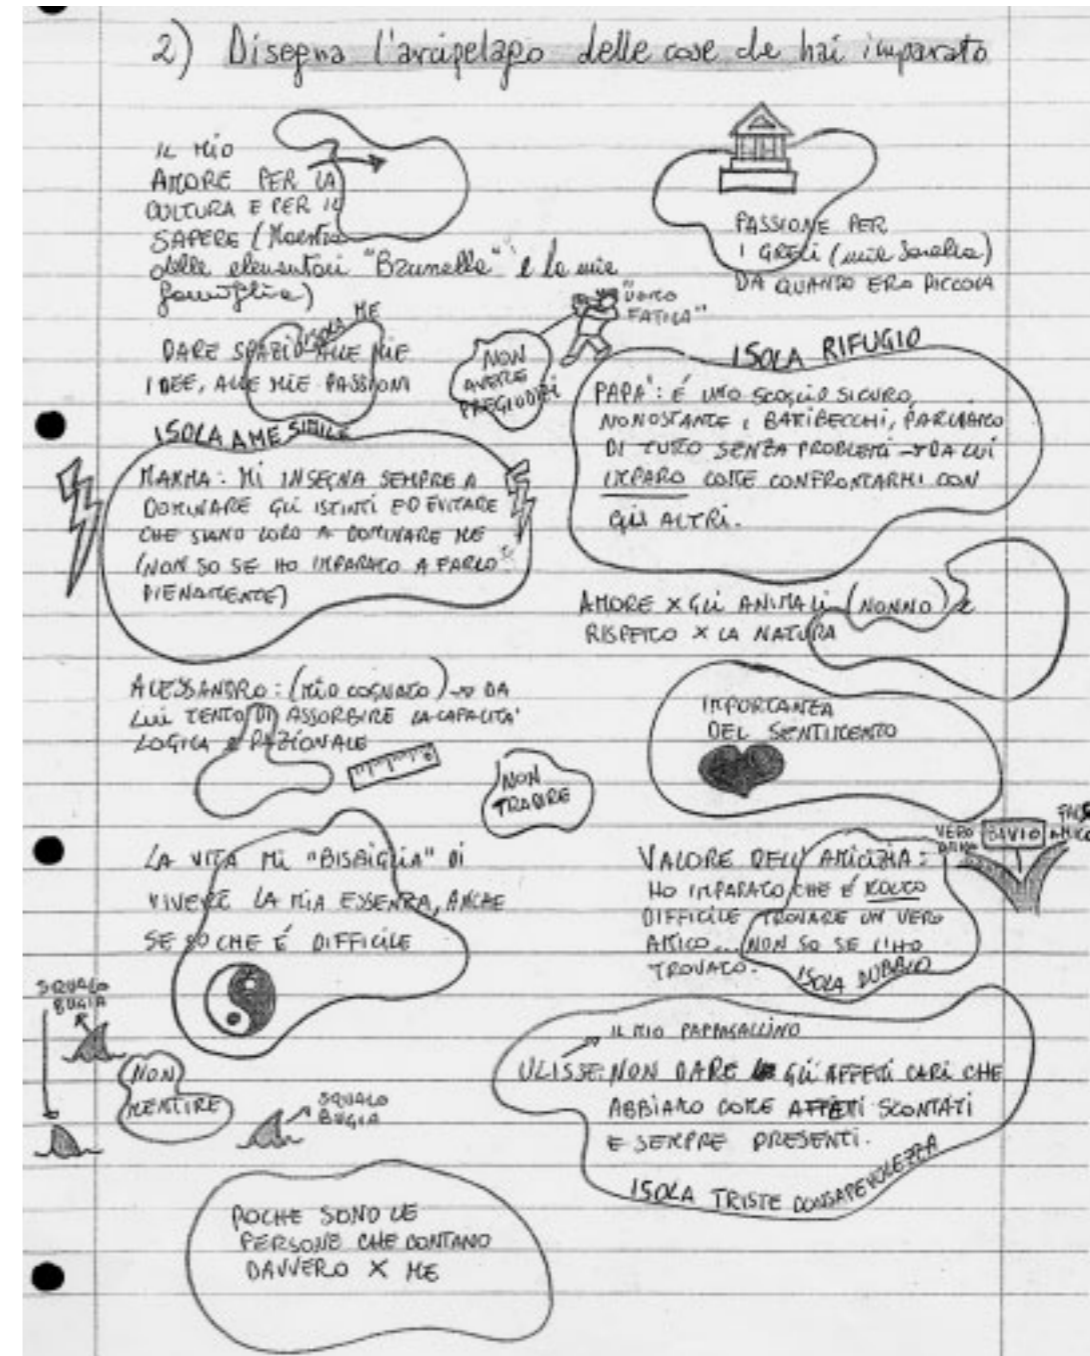 2) Disegna l'arcipelago delle cose che hai imparato
IL MIO
AMORE PER LA
CULTURA E PER IL
SAPERE (Maestra
delle elementari "Brunella" e la mia
famiglia)
PASSIONE PER
I GRECI (mia sorella)
DA QUANDO ERO PICCOLA
ISOLA ME
DARE SPAZIO ALLE MIE
IDEE, ALLE MIE PASSIONI
NON
AVERE
PREGIUDIZI
"UOMO
FATICA"
ISOLA RIFUGIO
PAPA': É UNO SCOGLIO SICURO,
NONOSTANTE I BATIBECCHI, PARLIAMO
DI TUTO SENZA PROBLEMI → DA LUI
IMPARO COME CONFRONTARMI CON
GLI ALTRI.
ISOLA A ME SIMILE
MAMMA: MI INSEGNA SEMPRE A
DOMINARE GLI ISTINTI ED EVITARE
CHE SIANO LORO A DOMINARE ME
(NON SO SE HO IMPARATO A FARLO
PIENAMENTE)
AMORE X GLI ANIMALI (NONNO) E
RISPETTO X LA NATURA
ALESSANDRO: (MIO COGNATO) → DA
LUI TENTO DI ASSORBIRE LA CAPACITA'
LOGICA E RAZIONALE
NON
TRADIRE
IMPORTANZA
DEL SENTIMENTO
LA VITA MI "BISBIGLIA" DI
VIVERE LA MIA ESSENZA, ANCHE
SE SO CHE É DIFFICILE
VERO
AMICO
BIVIO
FALSO
AMICO
VALORE DELL'AMICIZIA:
HO IMPARATO CHE É MOLTO
DIFFICILE TROVARE UN VERO
AMICO... NON SO SE L'HO
TROVATO.
ISOLA DUBBIO
SQUALO
BUGIA
NON
MENTIRE
SQUALO
BUGIA
IL MIO PAPPAGALLINO
ULISSE: NON DARE GLI AFFETTI CARI CHE
ABBIAMO COME AFFETTI SCONTATI
E SEMPRE PRESENTI.
ISOLA TRISTE CONSAPEVOLEZZA
POCHE SONO LE
PERSONE CHE CONTANO
DAVVERO X ME